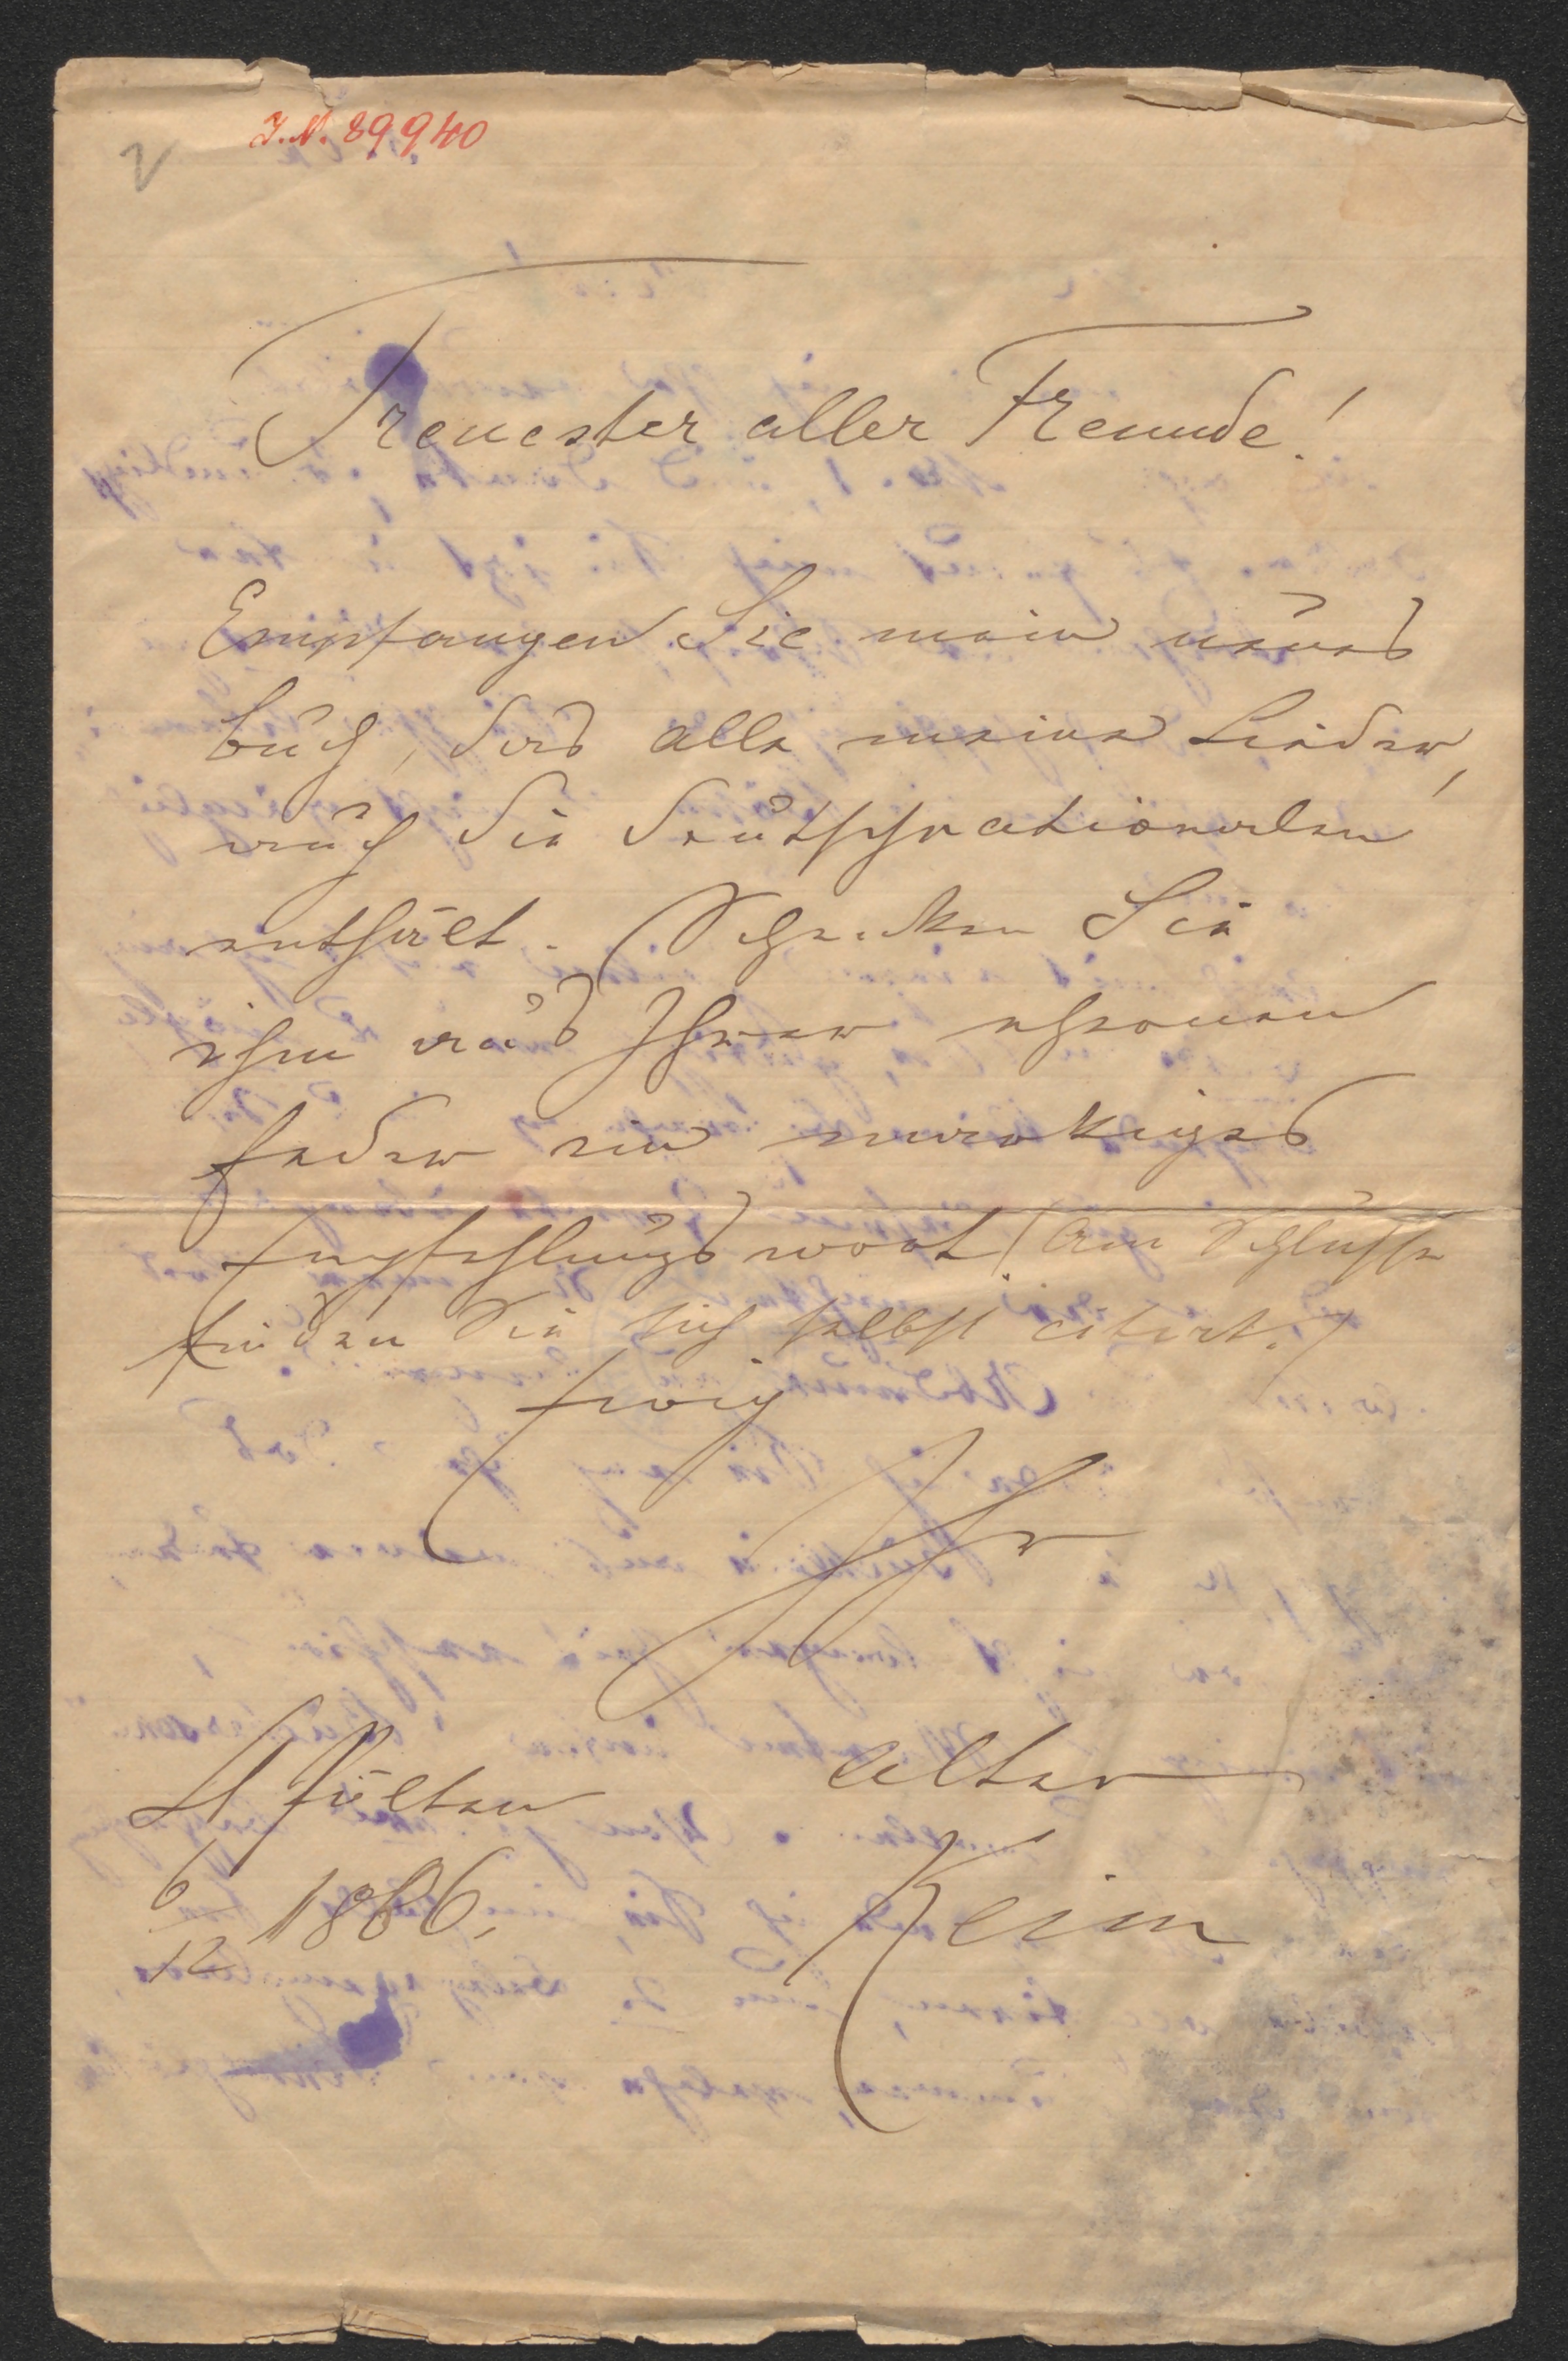 I.N. 89940
Treuester aller Freunde!
Empfangen Sie mein neues
Buch, das alle meine Lieder,
auch die deutschnationalen
enthält. Schenken Sie
ihm aus Ihrer ehernen
Feder ein markiges
Empfehlungswort (Am Schlusse
finden Sie sich selbst citirt.)
Ewig
Ihr
alter
St Pölten
6/12 1886.
Keim